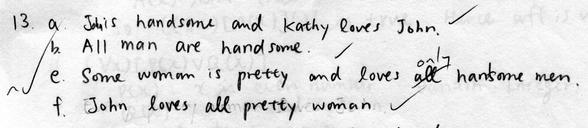 13. a. John is handsome and Kathy loves John.
b. All man are handsome.
e. Some woman is pretty and loves all handsome men.
f. John loves all pretty woman